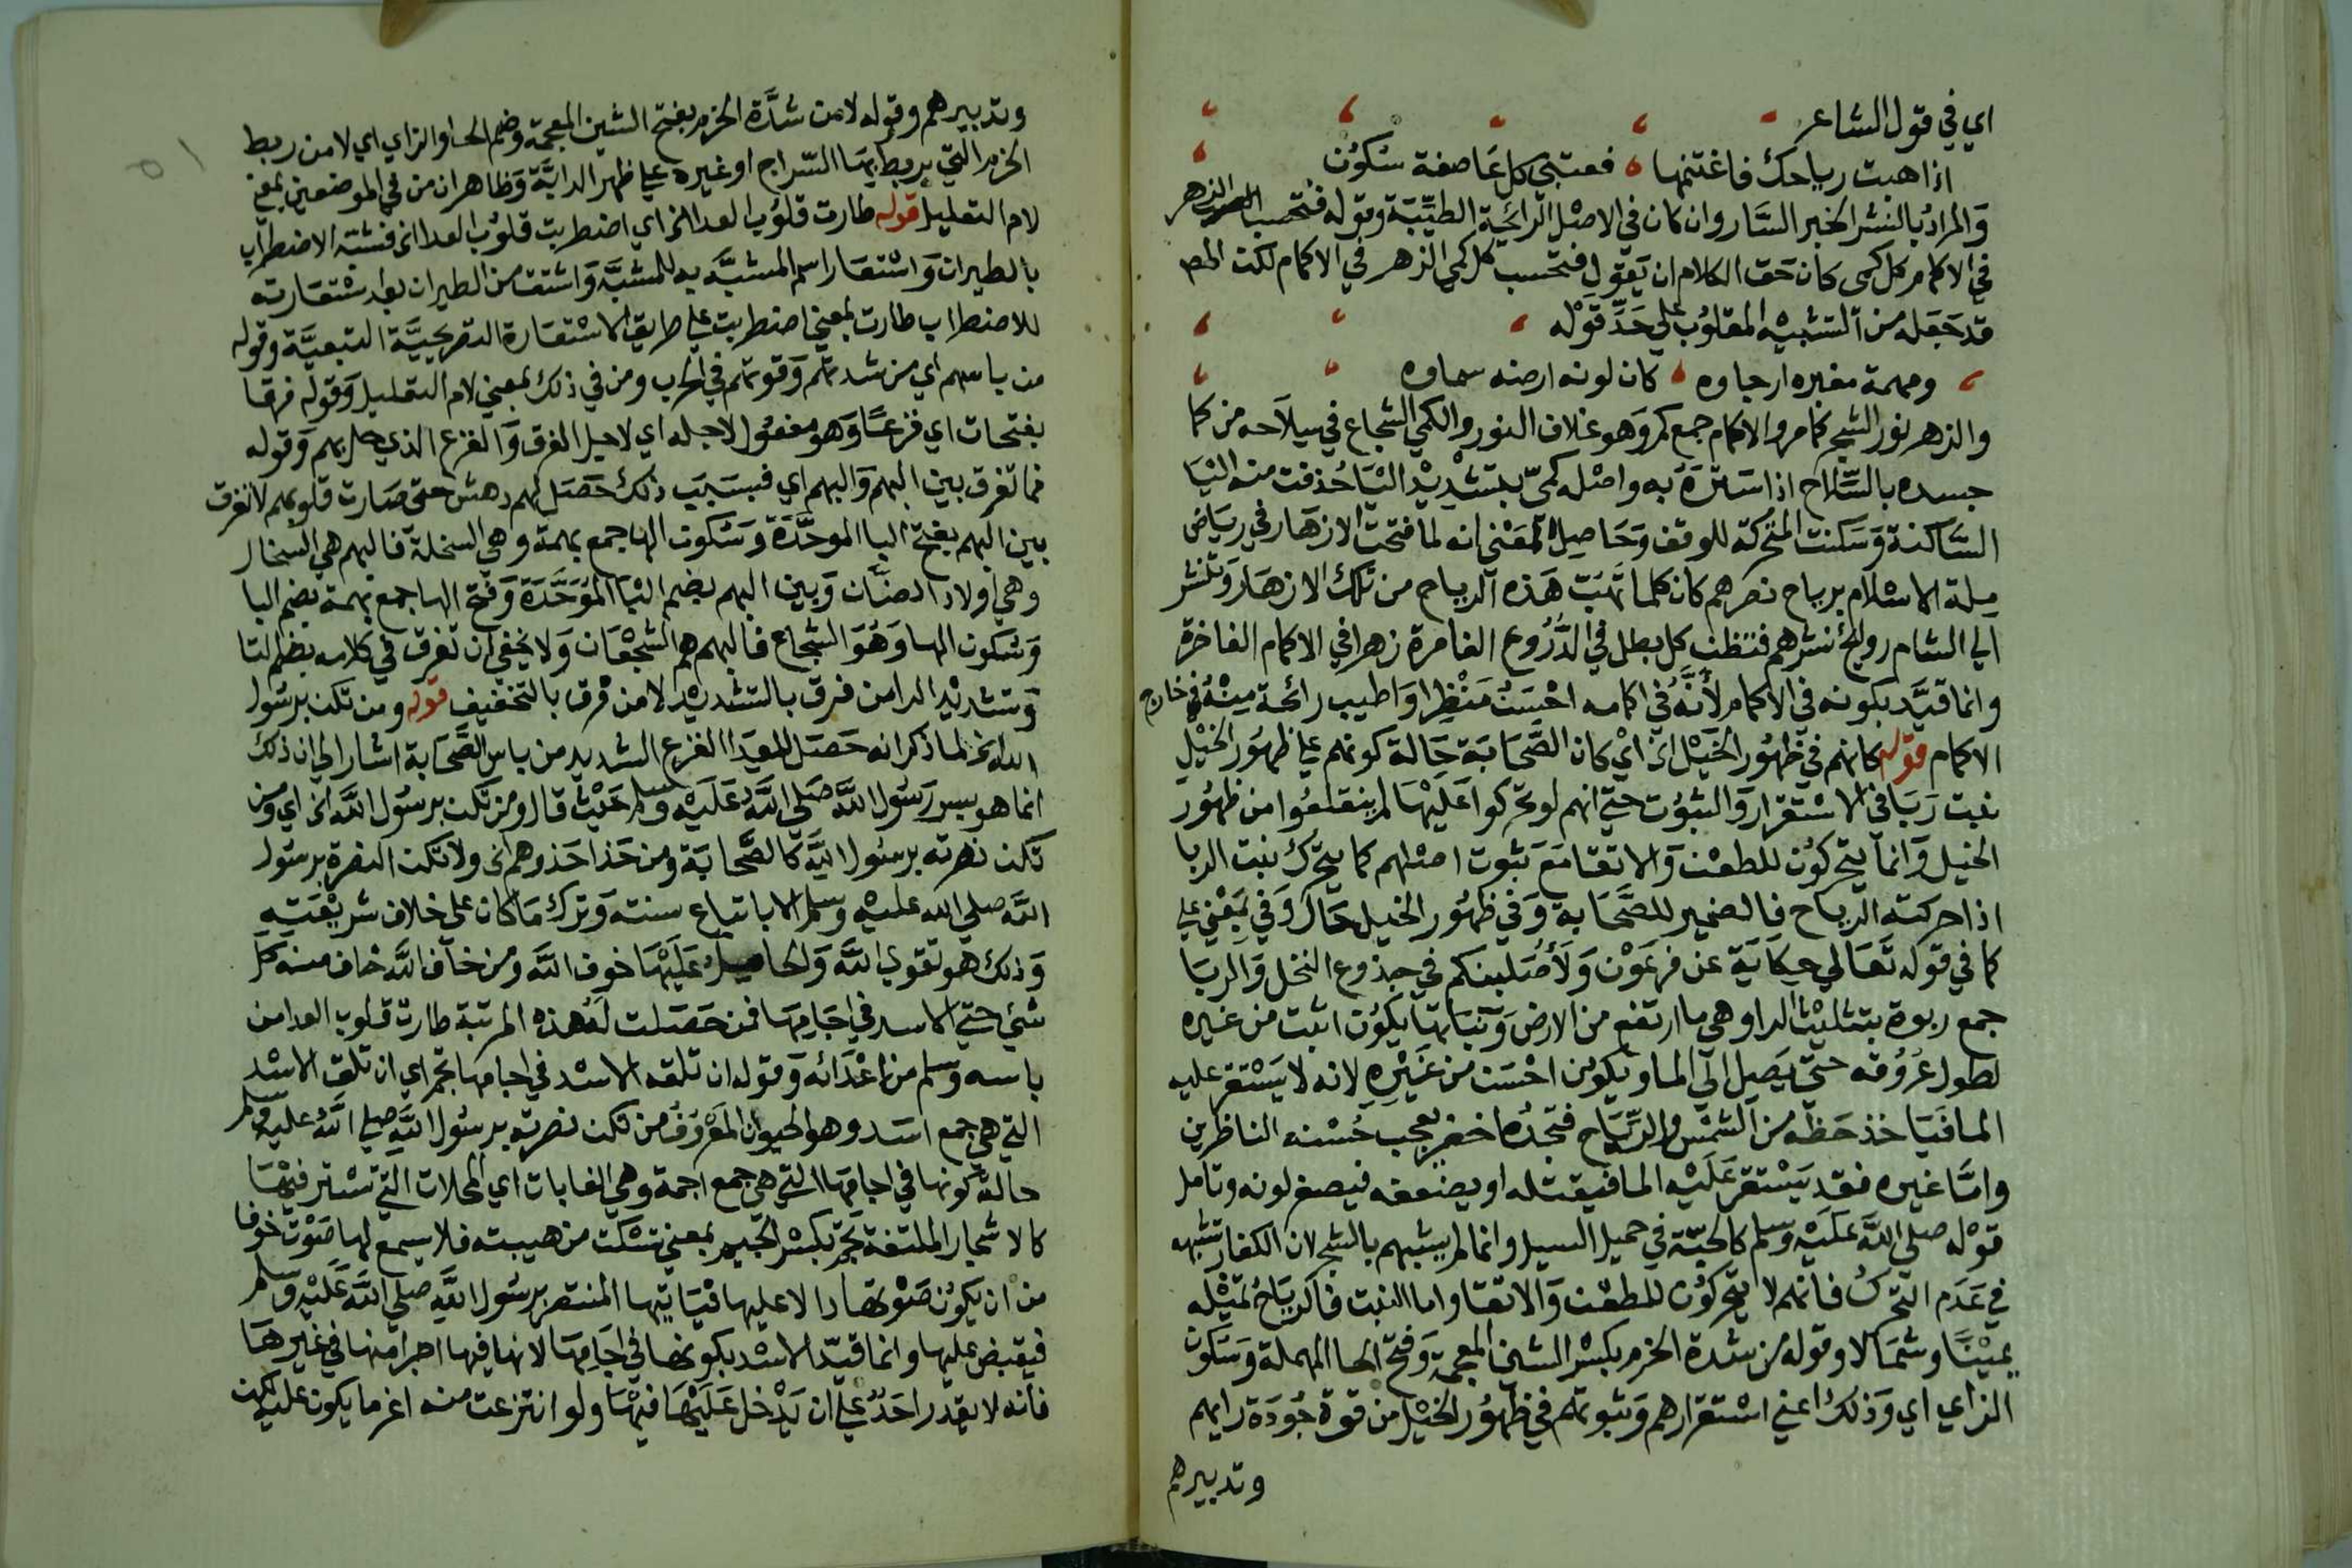 اي في قول الشاعر
اذا هبت رياحك فاغتنمها فعقبى كل عاصفة سكون
والمراد بالنشر الخبر السار وان كان في الاصل الرائحة الطيبة وقوله فتحسب الزهر
في الاكمام كل كمى كان حق الكلام ان يقول فتحسب كل كمي الزهر في الاكمام لكن المص
قد جعله من التشبيه المقلوب على حد قوله
ومهمة مغبره ارجاوه كان لونه ارضه سماوه
والزهر نور الشجر كما مر والاكمام جمع كم وهو غلاف النور والكمي الشجاع في سلاحه من كما
جسده بالسلاح اذا ستره به واصله كميّ بتشديد اليا حذفت منه اليا
الساكنة وسكنت المتحركة للوقف وحاصل المعنى انه لما فتحت الازهار في رياض
ملة الاسلام برياح نصرهم كان كلما تهب هذه الرياح من تلك الازهار وتنشر
الي الشام روايح نشرهم فتظن كل بطل في الدروع الغامرة زهرا في الاكمام الفاخرة
وانما قيد بكونه في الاكمام لأنه في اكمامه احسن منظرا واطيب رائحة منه في خارج
الاكمام قوله كانهم في ظهور الخيل الخ اي كان الصحابة حالة كونهم على ظهور الخيل
نبت ربا في الاستقرار والثبوت حتى انهم لو تحركوا عليها لم ينقلعوا من ظهور
الخيل وانما يتحركون للطعن والاتقا مع ثبوت اصلهم كما يتحرك نبت الربا
اذا حركته الرياح فالضمير للصحابة وفي ظهور الخيل حال وفي بمعني على
كما في قوله تعالي حكاية عن فرعون ولأصلبنكم في جذوع النخل والربا
جمع ربوة بتثليث الرا وهي ما ارتفع من الارض ونباتها يكون اثبت من غيره
لطول عروقه حتى يصل الي الما ويكون احسن من غيره لانه لا يستقر عليه
الما فياخذ حظه من الشمس والرياح فتجده اخضر يعجب حسنه الناظرين
واما غيره فقد يستقر عليه الما فيقتله او يضعفه فيصفر لونه وتامل
قوله صلى الله عليه وسلم كالحبة في حميل السيل وانما لم يشبههم بالشجر لان الكفار تشبهه
في عدم التحرك فانهم لا يتحركون للطعن والاتقا واما النبت فالرياح تميله
يمينا وشمالا وقوله من شدة الحزم بكسر الشين المعجمة وفتح الحا المهملة وسكون
الزاي اي وذلك اعني استقرارهم وثبوتهم في ظهور الخيل من قوة جودة رايهم
وتدبيرهم
وتدبيرهم وقوله لا من شدّة الحزم بفتح الشين المعجمة وضم الحا والزاي اي لا من ربط
الحزم التي يربط بها السراج او غيره على ظهر الدابة وظاهر ان من في الموضعين بمعني
لام التعليل قوله طارت قلوب العدا الخ اي اضطربت قلوب العدا الخ فشبه الاضطراب
بالطيران واستعار اسم المشبه به للمشبه واشتق من الطيران بعد استعارته
للاضطراب طارت بمعني اضطربت على طريق الاستعارة التصريحية التبعية وقوله
من باسهم اي من شدتهم وقوتهم في الحرب ومن في ذلك بمعني لام التعليل وقوله فرقا
بفتحات اي فزعا وهو مفعول لاجله اي لاجل الفرق والفزع الذي حل بهم وقوله
فما تفرق بين البهم والبهم اي فبسبب ذلك حصل لهم دهش حتى صارت قلوبهم لا تفرق
بين البهم بفتح البا الموحدة وسكون الها جمع بهمة وهي السخلة فالبهم هي السخال
وهي اولاد الضان وبين البهم بضم البا الموحدة وفتح الها جمع بهمة بضم البا
وسكون الها وهو الشجاع فالبهم هم الشجعان ولا يخفي ان تفرق في كلامه بضم التا
وتشديد الرا من فرق بالتشديد لا من فرق بالتخفيف قوله ومن تكن برسول
الله الخ لما ذكر انه حصل للعدا الفزع الشديد من باس الصحابة اشار الي ان ذلك
انما هو بسر رسول الله صلى الله عليه وسلم حيث قال ومن تكن برسول الله الخ اي ومن
تكن نصرته برسول الله كالصحابة ومن حذا حذوهم الخ ولا تكن النصرة برسول
الله صلي الله عليه وسلم الا باتباع سنته وترك ما كان على خلاف شريعته
وذلك هو تقوي الله والحامل عليها خوف الله ومن خاف الله خاف منه كل
شيء حتي الاسد في اجامها فمن حصلت له هذه المرتبة طارت قلوب العدا من
باسه وسلم من اعدائه وقوله ان تلقه الاسد في اجامها تجم اي ان تلق الاسد
التي هي جمع اسد وهو الحيوان المعروف من تكن نصرته برسول الله صلي الله عليه وسلم
حالة كونها في اجامها التي هي جمع اجمة وهي الغابات اي المحلات التي تستتر فيها
كالاشجار الملتفة تجم بكسر الجيم بمعني تسكت من هيبته فلا يسمع لها صوت خوفا
من ان يكون صوتها دالا عليها فياتيها المنتصر برسول الله صلي الله عليه وسلم
فيقبض عليها وانما قيد الاسد بكونها في اجامها لانها فيها اجرا منها في غيرها
فانه لا يقدر احد على ان يدخل عليها فيها ولو انتزعت منه اعز ما يكون عليه لكن